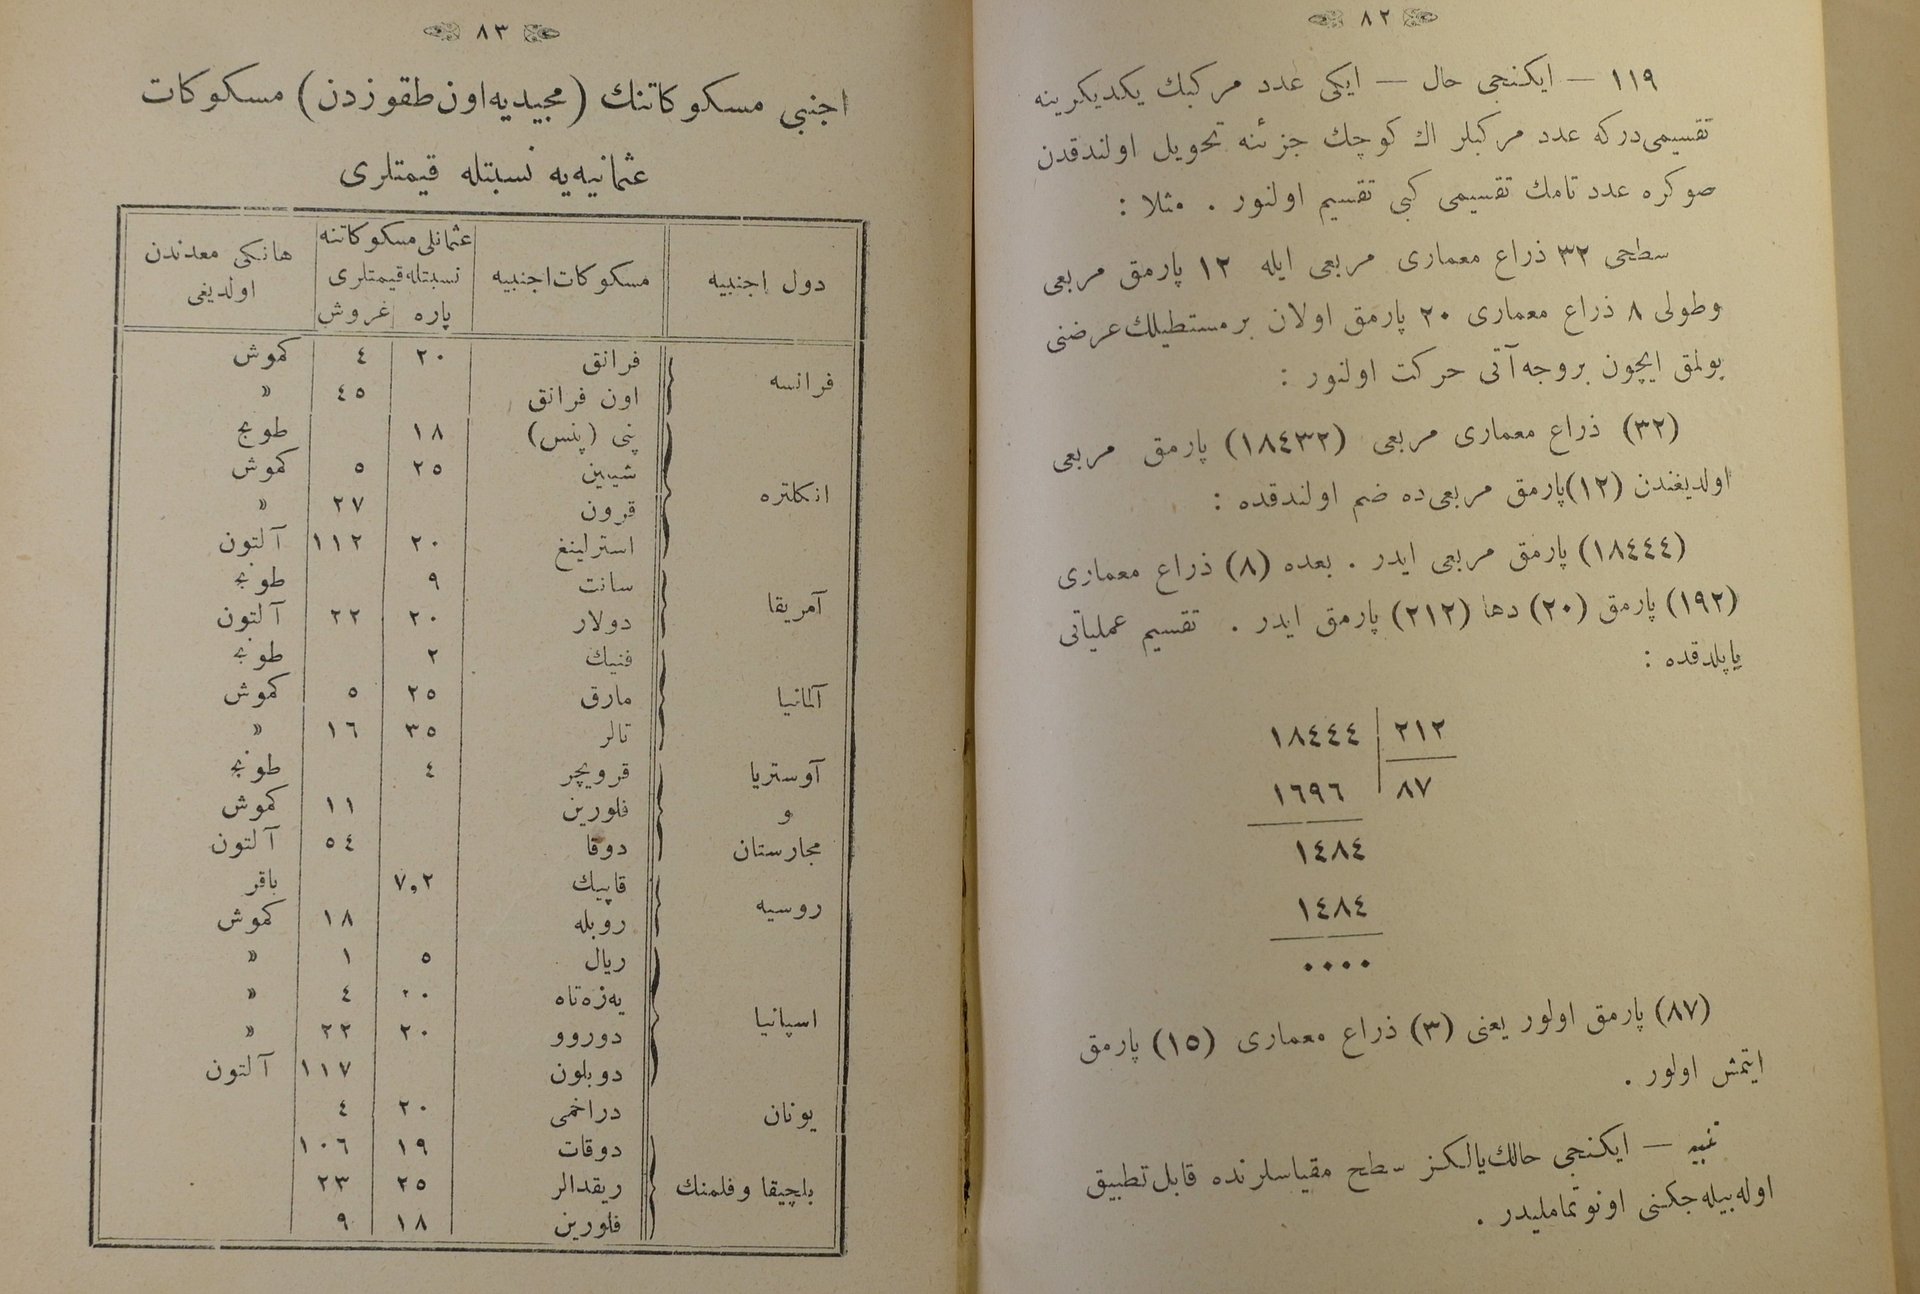 ٨٢
١١٩ — ایكنجی حال — ایكی عدد مركبك یكدیكرینه
تقسیمی‌دركه عدد مركبلر اك كوچك جزئنه تحویل اولندقدن
صوكره عدد تامك تقسیمی كبی تقسیم اولنور . مثلا :
سطحی ٣٢ ذراع معماری مربعی ایله ١٢ پارمق مربعی
وطولی ٨ ذراع معماری ٢٠ پارمق اولان بر مستطیلك عرضنی
بولمق ایچون بروجه آتی حركت اولنور :
(٣٢) ذراع معماری مربعی (١٨٤٣٢) پارمق مربعی
اولدیغندن (١٢) پارمق مربعی‌ده ضم اولندقده :
(١٨٤٤٤) پارمق مربعی ایدر . بعده (٨) ذراع معماری
(١٩٢) پارمق (٢٠) دها (٢١٢) پارمق ایدر . تقسیم عملیاتی
یاپلدقده :
١٨٤٤٤ | ٢١٢
١٦٩٦ | ٨٧
١٤٨٤
١٤٨٤
٠٠٠٠
(٨٧) پارمق اولور یعنی (٣) ذراع معماری (١٥) پارمق
ایتمش اولور .
تنبیه — ایكنجی حالك یالكز سطح مقیاسلرنده قابل تطبیق
اوله‌بیله‌جكنی اونوتماملیدر .
٨٣
اجنبی مسكوكاتنك (مجیدیه اون طقوزدن) مسكوكات
عثمانیه‌یه نسبتله قیمتلری
دول اجنبیه
مسكوكات اجنبیه
عثمانلی مسكوكاتنه
نسبتله قیمتلری
پاره غروش
هانكی معدندن
اولدیغی
فرانسه
فرانق ٢٠ ٤ كموش
اون فرانق ٤٥ »
انكلتره
پنی (پنس) ١٨ طونج
شیلین ٢٥ ٥ كموش
قرون ٢٧ »
استرلینغ ٢٠ ١١٢ آلتون
آمریقا
سانت ٩ طونج
دولار ٢٠ ٢٢ آلتون
آلمانیا
فنیك ٢ طونج
مارق ٢٥ ٥ كموش
تالر ٣٥ ١٦ »
آوستریا
و
مجارستان
قرویچر ٤ طونج
فلورین ١١ كموش
دوقا ٥٤ آلتون
روسیه
قاپیك ٧,٢ باقر
روبله ١٨ كموش
اسپانیا
ریال ٥ ١ »
یه‌زه‌تاه ٢٠ ٤ »
دوروو ٢٠ ٢٢ »
دوبلون ١١٧ آلتون
یونان
دراخمی ٢٠ ٤
بلچیقا و فلمنك
دوقات ١٩ ١٠٦
ریقدالر ٢٥ ٢٣
فلورین ١٨ ٩